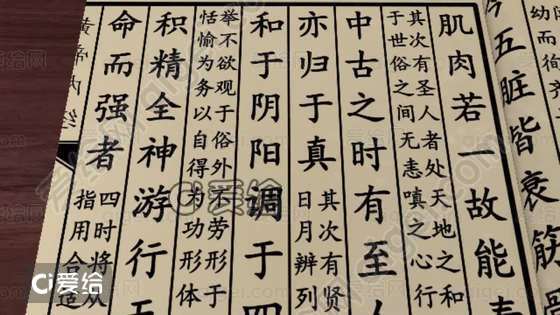 幼而徇齐
今五脏皆衰筋
肌肉若一故能
其次有圣人者处天地之和
于世俗之间无恚嗔之心行
中古之时有至人
亦归于真
其次有贤
日月辨列
和于阴阳调于四
举不欲观于俗外不劳形于
恬愉为务以自得为功形体
积精全神游行天
命而强者
四时将从
指用合适
黄帝内经
爱给
爱给